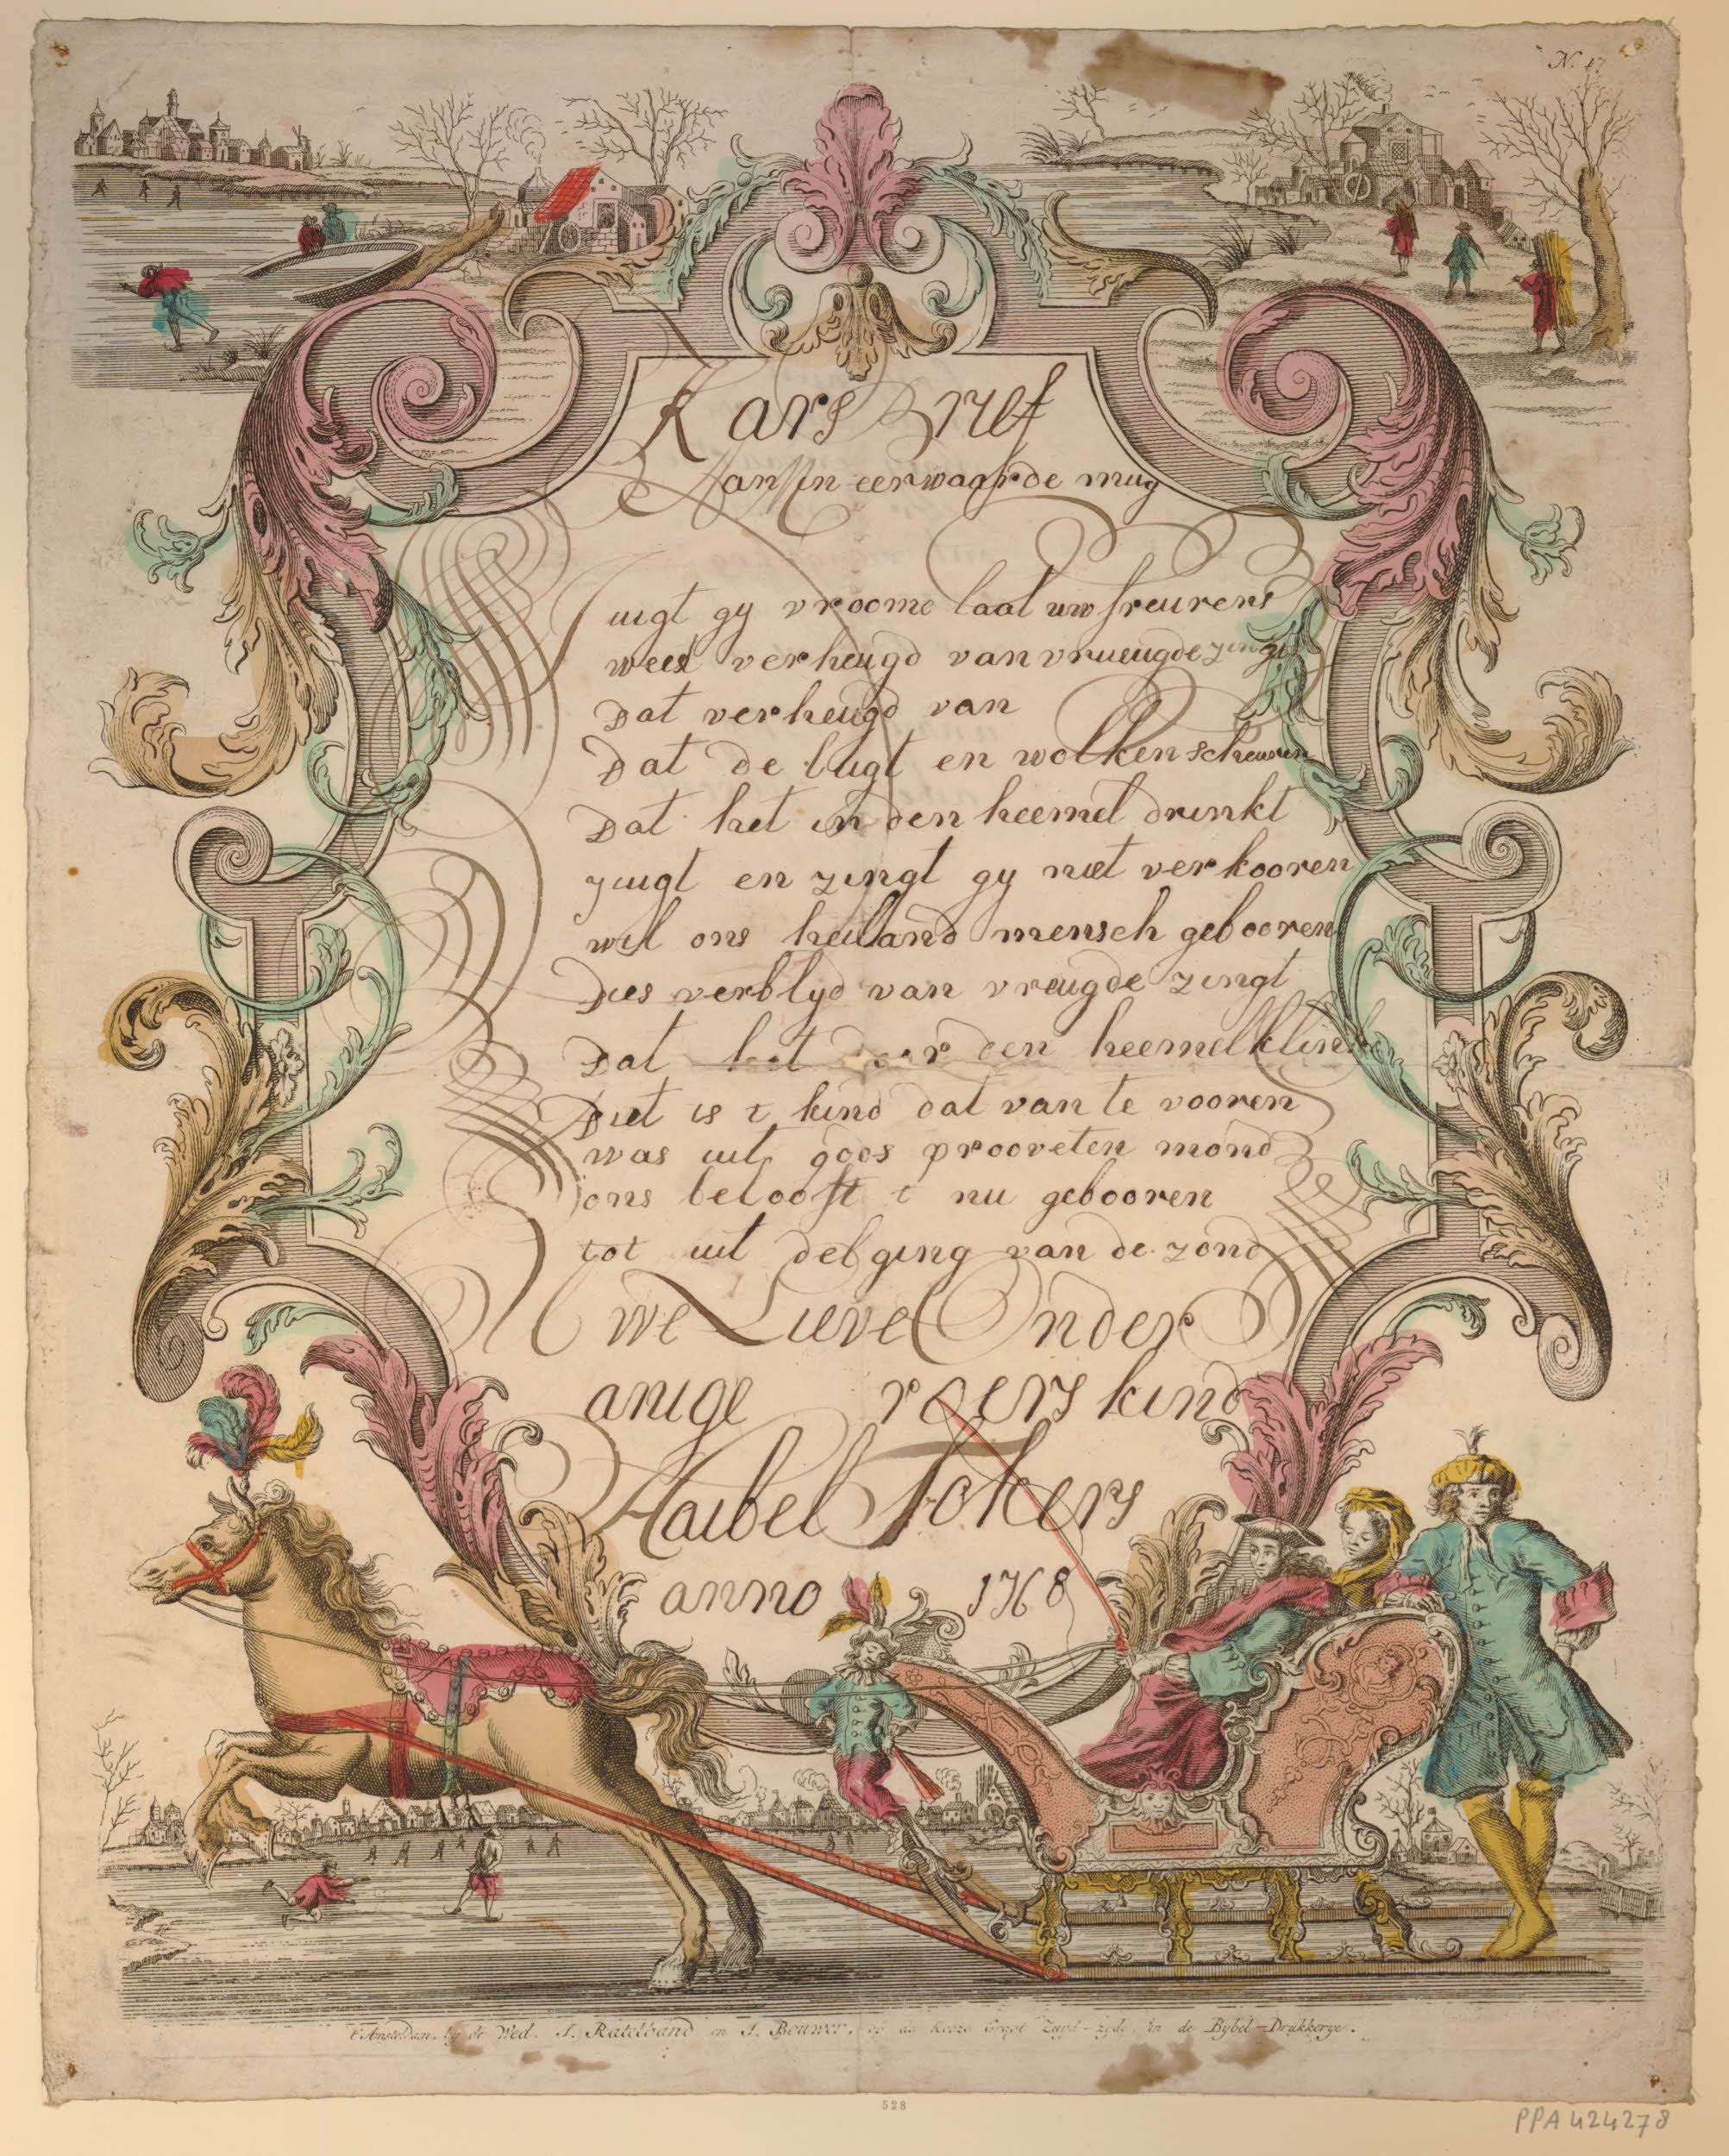 N. 17
Kars Brief
Aan myn eerwaarde muy
Juigt gy vroome laat uw treurens
weest verheugd van vrueugde zingt
Dat verheugd van
Dat de lugt en wolken scheuren
Dat het in den heemel drinkt
juigt en zingt gy niet verkooren
wil ons heiland mensch gebooren
Dies verblyd van vreugde zingt
Dat het door den heemel klinkt
Diet is t kind dat van te vooren
was uit gods prooveten mond
ons belooft t nu gebooren
tot uit delging van de zond
Uwe Lieve Onder
anige roers kind
Haibel Fokers
anno 1768
t'Amsteldam, by de Wed. J. Ratelband en J. Bouwer, op de Rooze Gragt Zuyd-zyde, in de Bybel-Drukkerye.
528
PPA 424278